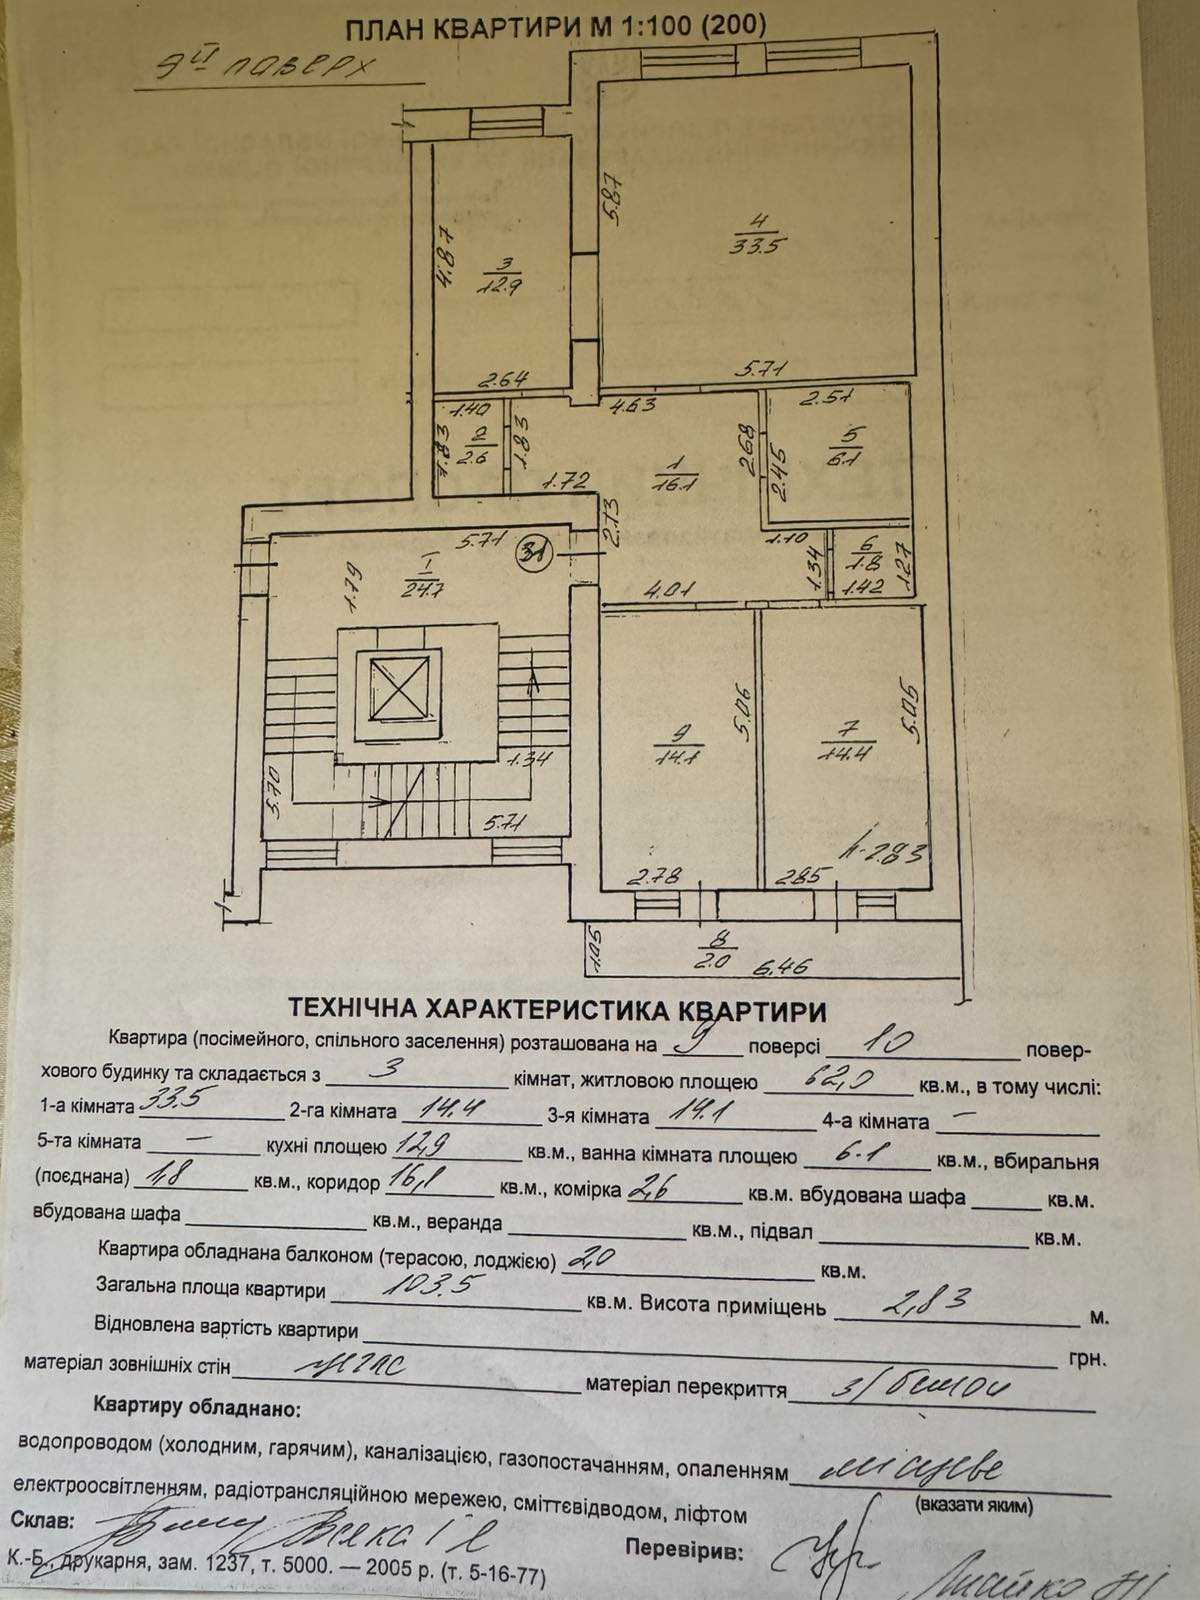 ПЛАН КВАРТИРИ М 1:100 (200)
9ий поверх
5.87
4
33.5
4.87
3
12.9
2.64
5.71
1.40
4.63
2.51
1.83
2
2.6
1.83
1
16.1
2.68
2.45
5
6.1
1.72
2.13
5.71
31
1.10
1.34
6
1.8
1.27
1.79
I
24.7
4.01
1.42
5.06
5.05
9
14.1
7
14.4
1.34
5.70
5.71
h-2.83
2.78
2.85
1.05
8
2.0
6.46
ТЕХНІЧНА ХАРАКТЕРИСТИКА КВАРТИРИ
Квартира (посімейного, спільного заселення) розташована на 9 поверсі 10 повер-
хового будинку та складається з 3 кімнат, житловою площею 62,0 кв.м., в тому числі:
1-а кімната 33.5 2-га кімната 14.4 3-я кімната 14.1 4-а кімната —
5-та кімната — кухні площею 12,9 кв.м., ванна кімната площею 6.1 кв.м., вбиральня
(поєднана) 1,8 кв.м., коридор 16,1 кв.м., комірка 2,6 кв.м. вбудована шафа кв.м.
вбудована шафа кв.м., веранда кв.м., підвал кв.м.
Квартира обладнана балконом (терасою, лоджією) 2,0 кв.м.
Загальна площа квартири 103.5 кв.м. Висота приміщень 2,83 м.
Відновлена вартість квартири грн.
матеріал зовнішніх стін матеріал перекриття з/бетон
Квартиру обладнано:
водопроводом (холодним, гарячим), каналізацією, газопостачанням, опаленням місцеве
(вказати яким)
електроосвітленням, радіотрансляційною мережею, сміттєвідводом, ліфтом
Склав:
Перевірив:
К.-Б., друкарня, зам. 1237, т. 5000. — 2005 р. (т. 5-16-77)